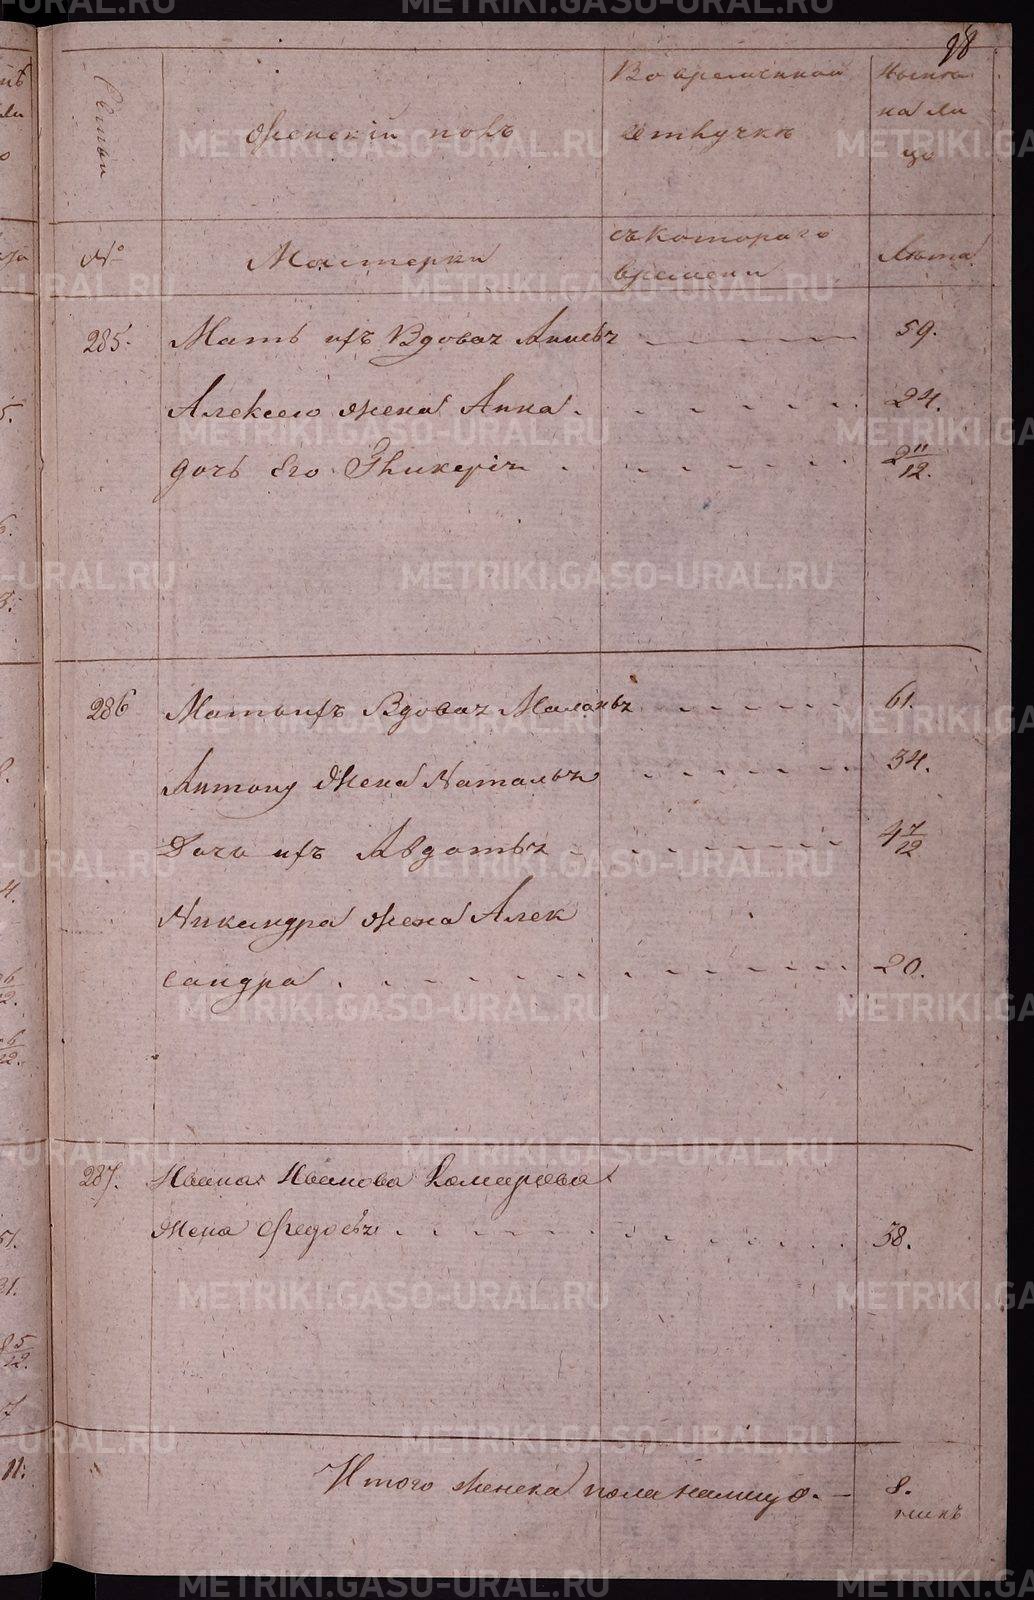 98
Семьи
Женскій полъ
Во временной
отлучкѣ
Нынѣ
на ли
цо
№
Мастерки
съ котораго
времени
Лѣта
285.
Мать ихъ Вдовая
59.
Алексею жена Анна
24.
дочь Его Гликерія
2 11/12.
286
Мать ихъ Вдовая Маланья
61.
Антону Жена Наталья
34.
Дочь ихъ Авдотья
4 7/12
Никандра жена Алек
сандра
20.
287.
Ивана Иванова Комарова
жена Федосья
38.
Итого женска пола налицо.
8.
METRIKI.GASO-URAL.RU